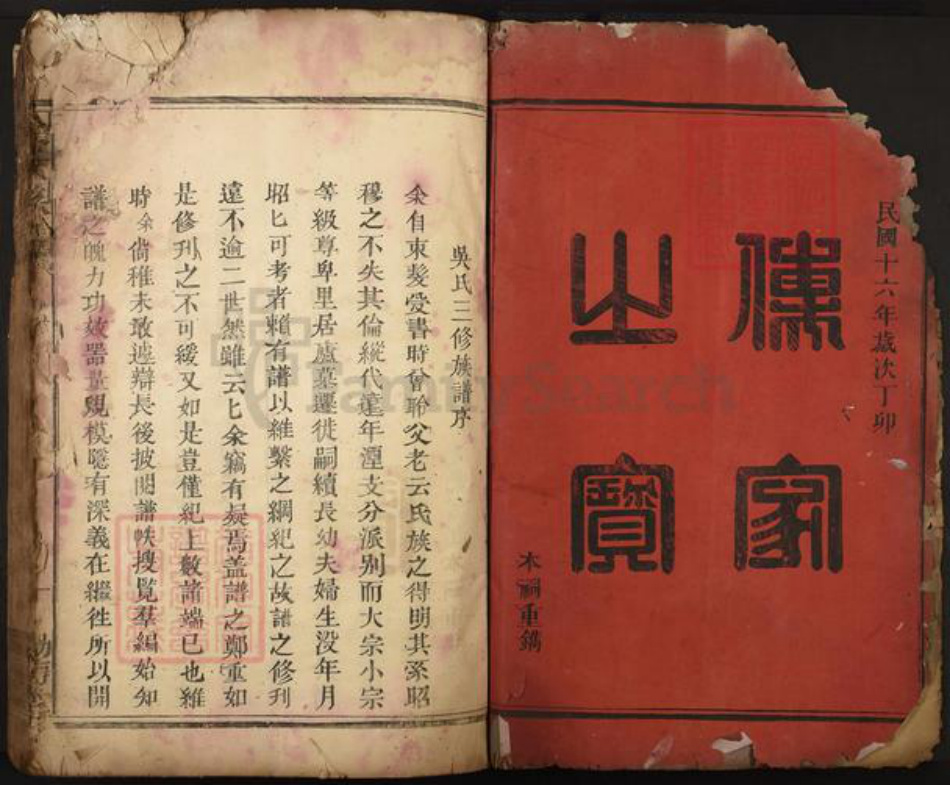 民國十六年歲次丁卯
傳家
之寶
本嗣重鐫
吳氏三修族譜序
余自束髮受書時曾聆父老云氏族之得明其系昭
穆之不失其倫縱代遠年湮支分派別而大宗小宗
等級尊卑里居廬墓遷徙嗣續長幼夫婦生没年月
昭匕可考者賴有譜以維繫之綱紀之故譜之修刊
遠不逾二世然雖云匕余竊有疑焉盖譜之鄭重如
是修刋之不可緩又如是豈僅紀上數諸端已也維
時余尙稚未敢遽辯長後披閱譜帙搜覽羣編始知
譜之魄力功效器量規模隱有深義在繼徃所以開
FamilySearch